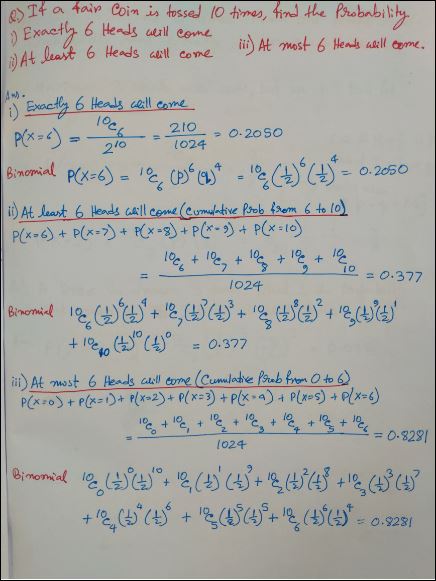 Q) If a fair Coin is tossed 10 times, find the Probability
i) Exactly 6 Heads will come
ii) At least 6 Heads will come iii) At most 6 Heads will come.
Ans.
i) Exactly 6 Heads will come
P(X=6) = ¹⁰C₆ / 2¹⁰ = 210 / 1024 = 0.2050
Binomial P(X=6) = ¹⁰C₆ (p)⁶ (q)⁴ = ¹⁰C₆ (1/2)⁶ (1/2)⁴ = 0.2050
ii) At least 6 Heads will come (Cumulative Prob from 6 to 10)
P(X=6) + P(X=7) + P(X=8) + P(X=9) + P(X=10)
= ¹⁰C₆ + ¹⁰C₇ + ¹⁰C₈ + ¹⁰C₉ + ¹⁰C₁₀ / 1024 = 0.377
Binomial ¹⁰C₆ (1/2)⁶ (1/2)⁴ + ¹⁰C₇ (1/2)⁷ (1/2)³ + ¹⁰C₈ (1/2)⁸ (1/2)² + ¹⁰C₉ (1/2)⁹ (1/2)¹
+ ¹⁰C₁₀ (1/2)¹⁰ (1/2)⁰ = 0.377
iii) At most 6 Heads will come (Cumulative Prob from 0 to 6)
P(X=0) + P(X=1) + P(X=2) + P(X=3) + P(X=4) + P(X=5) + P(X=6)
= ¹⁰C₀ + ¹⁰C₁ + ¹⁰C₂ + ¹⁰C₃ + ¹⁰C₄ + ¹⁰C₅ + ¹⁰C₆ / 1024 = 0.8281
Binomial ¹⁰C₀ (1/2)⁰ (1/2)¹⁰ + ¹⁰C₁ (1/2)¹ (1/2)⁹ + ¹⁰C₂ (1/2)² (1/2)⁸ + ¹⁰C₃ (1/2)³ (1/2)⁷
+ ¹⁰C₄ (1/2)⁴ (1/2)⁶ + ¹⁰C₅ (1/2)⁵ (1/2)⁵ + ¹⁰C₆ (1/2)⁶ (1/2)⁴ = 0.8281